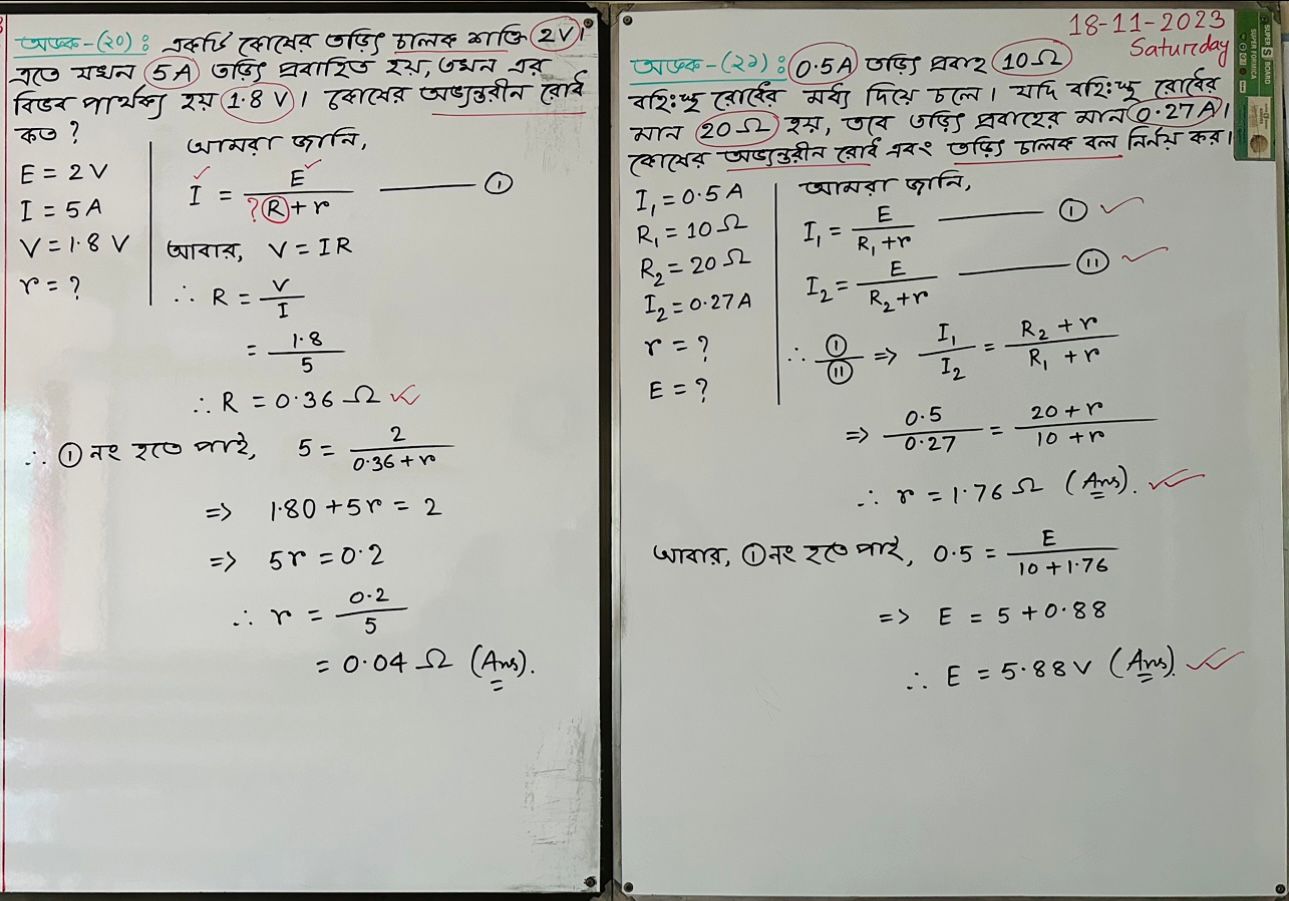 অংক-(২০) : একটি কোষের তড়িৎ চালক শক্তি 2V।
এতে যখন 5A তড়িৎ প্রবাহিত হয়, তখন এর
বিভব পার্থক্য হয় 1.8 V। কোষের অভ্যন্তরীন রোধ
কত ?
E = 2V
I = 5A
V = 1.8 V
r = ?
আমরা জানি,
I = E / ?R + r ——— ①
আবার, V = IR
∴ R = V / I
= 1.8 / 5
∴ R = 0.36 Ω
∴ ① নং হতে পাই, 5 = 2 / 0.36 + r
=> 1.80 + 5r = 2
=> 5r = 0.2
∴ r = 0.2 / 5
= 0.04 Ω (Ans).
18-11-2023
Saturday
SUPER S BOARD
SUPER FORMICA
অংক-(২১) : 0.5A তড়িৎ প্রবাহ 10Ω
বহিঃস্থ রোধের মধ্য দিয়ে চলে। যদি বহিঃস্থ রোধের
মান 20Ω হয়, তবে তড়িৎ প্রবাহের মান 0.27A।
কোষের অভ্যন্তরীন রোধ এবং তড়িৎ চালক বল নির্নয় কর।
I₁ = 0.5A
R₁ = 10Ω
R₂ = 20Ω
I₂ = 0.27A
r = ?
E = ?
আমরা জানি,
I₁ = E / R₁ + r ——— ①
I₂ = E / R₂ + r ——— ⑪
∴ ① / ⑪ => I₁ / I₂ = R₂ + r / R₁ + r
=> 0.5 / 0.27 = 20 + r / 10 + r
∴ r = 1.76 Ω (Ans).
আবার, ① নং হতে পাই, 0.5 = E / 10 + 1.76
=> E = 5 + 0.88
∴ E = 5.88V (Ans)